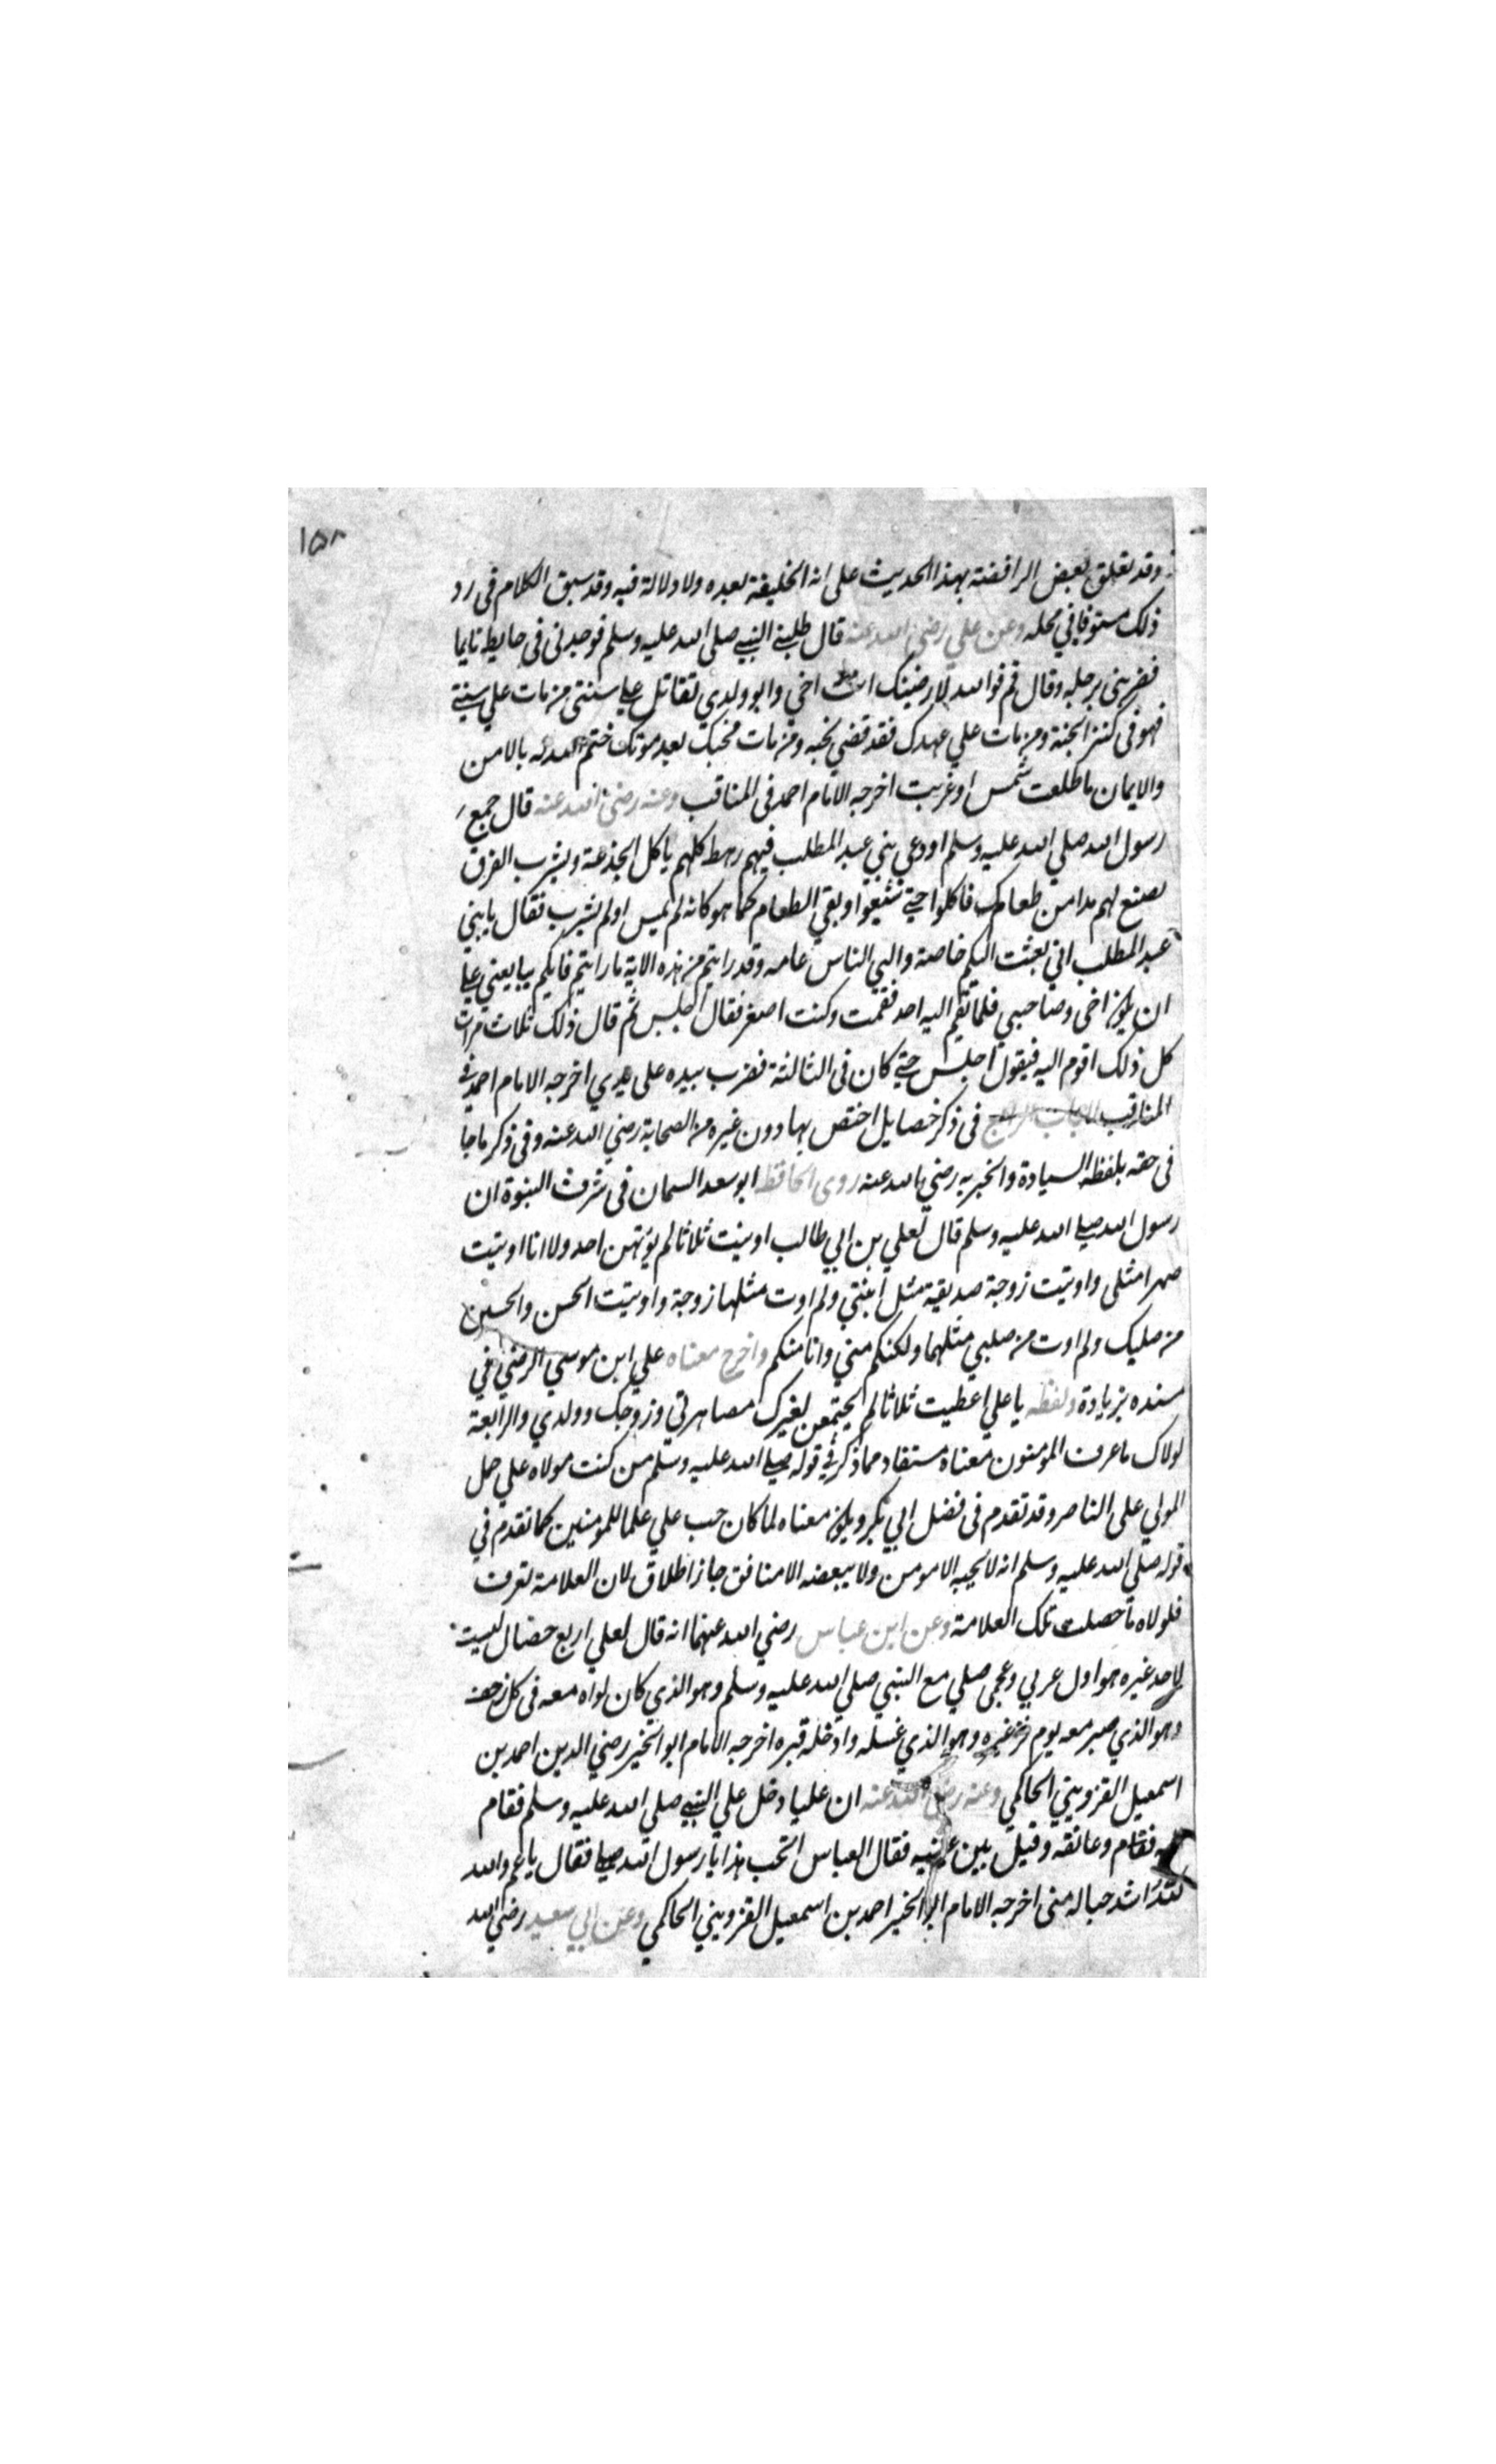 ١٥٨
وقد تعلق بعض الرافضة بهذا الحديث على انه الخليفة بعده ولا دلالة فيه وقد سبق الكلام في رد
ذلك مستوفا في محله وعن علي رضي الله عنه قال طلبني النبي صلى الله عليه وسلم فوجدني في حايط نايما
فضربني برجله وقال قم فوالله لارضينك انت اخي وابو ولدي تقاتل على سنتي من مات علي سنتي
فهو في كنز الجنة ومن مات علي عهدك فقد قضي نحبه ومن مات محبك بعد موتك ختم الله له بالامن
والايمان ما طلعت شمس او غربت اخرجه الامام احمد في المناقب وعنه رضي الله عنه قال جمع
رسول الله صلي الله عليه وسلم او دعي بني عبد المطلب فيهم رهط كلهم ياكل الجذعة ويشرب الفرق
فصنع لهم مدا من طعام فاكلوا حتي شبعوا وبقي الطعام كما هو كانه لم يمس او لم يشرب فقال يا بني
عبد المطلب اني بعثت اليكم خاصة والي الناس عامه وقد رايتم من هذه الاية ما رايتم فايكم يبايعني علي
ان يكون اخي وصاحبي فلم يقم اليه احد فقمت وكنت اصغر فقال اجلس ثم قال ذلك ثلاث مرات
كل ذلك اقوم اليه فيقول اجلس حتي كان في الثالثة فضرب بيده على يدي اخرجه الامام احمد في
المناقب الباب الرابع في ذكر خصايل اختص بها دون غيره من الصحابة رضي الله عنه وفي ذكر ما جا
في حقه بلفظ السيادة والخيريه رضي الله عنه روى الحافظ ابو سعد السمان في شرف النبوة ان
رسول الله صلي الله عليه وسلم قال لعلي بن ابي طالب اوتيت ثلاثا لم يؤتهن احد ولا انا اوتيت
صهرا مثلي واوتيت زوجة صديقية مثل ابنتي ولم اوت مثلها زوجة واوتيت الحسن والحسين
من صلبك ولم اوت من صلبي مثلهما ولكنكم مني وانا منكم واخرج معناه علي ابن موسي الرضي في
مسنده بزيادة ولفظه يا علي اعطيت ثلاثا لم يجتمعن لغيرك مصاهرتي وزوجك وولدي والرابعة
لولاك ما عرف المومنون معناه مستفاد مما ذكر في قوله صلي الله عليه وسلم من كنت مولاه علي حمل
المولي على الناصر وقد تقدم في فضل ابي بكر ويكون معناه لما كان حب علي علما للمومنين كما تقدم في
قوله صلي الله عليه وسلم انه لا يحبه الا مومن ولا يبغضه الا منافق جاز اطلاق لان العلامة تعرف
فلولاه ما حصلت تلك العلامة وعن ابن عباس رضي الله عنهما انه قال لعلي اربع خصال ليست
لاحد غيره هو اول عربي وعجمي صلي مع النبي صلي الله عليه وسلم وهو الذي كان لواه معه في كل زحف
وهو الذي صبر معه يوم فر غيره وهو الذي غسله وادخله قبره اخرجه الامام ابو الخير رضي الدين احمد بن
اسمعيل القزويني الحاكمي وعنه رضي الله عنه ان عليا دخل علي النبي صلي الله عليه وسلم فقام
فقام وعانقه وقبل بين عينيه فقال العباس اتحب هذا يا رسول الله فقال يا عم والله
لله اشد حبا له مني اخرجه الامام ابو الخير احمد بن اسمعيل القزويني الحاكمي وعن ابي سعيد رضي الله